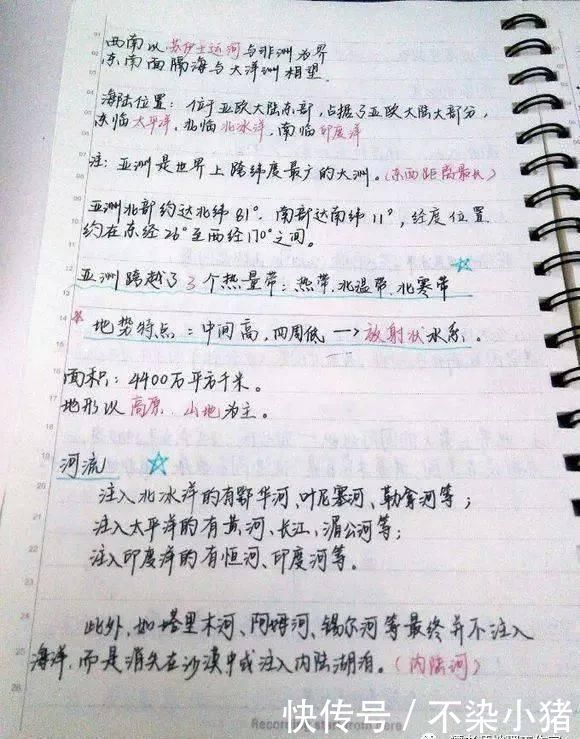 西南以苏伊士运河与非洲为界
东南面隔海与大洋洲相望.
海陆位置：位于亚欧大陆东部，占据了亚欧大陆大部分，
东临太平洋，北临北冰洋，南临印度洋
注：亚洲是世界上跨纬度最广的大洲。(东西距离最长)
亚洲北部约达北纬81°．南部达南纬11°，经度位置
约在东经26°至西经170°之间。
亚洲跨越了3个热量带：热带、北温带、北寒带
* 地势特点：中间高，四周低→放射状水系。
面积：4400万平方千米。
地形以高原、山地为主。
河流
注入北冰洋的有鄂毕河、叶尼塞河、勒拿河等；
注入太平洋的有黄河、长江、湄公河等；
注入印度洋的有恒河、印度河等。
此外，如塔里木河、阿姆河、锡尔河等最终并不注入
海洋，而是消失在沙漠中或注入内陆湖泊。(内陆河)
快传号／不染小猪